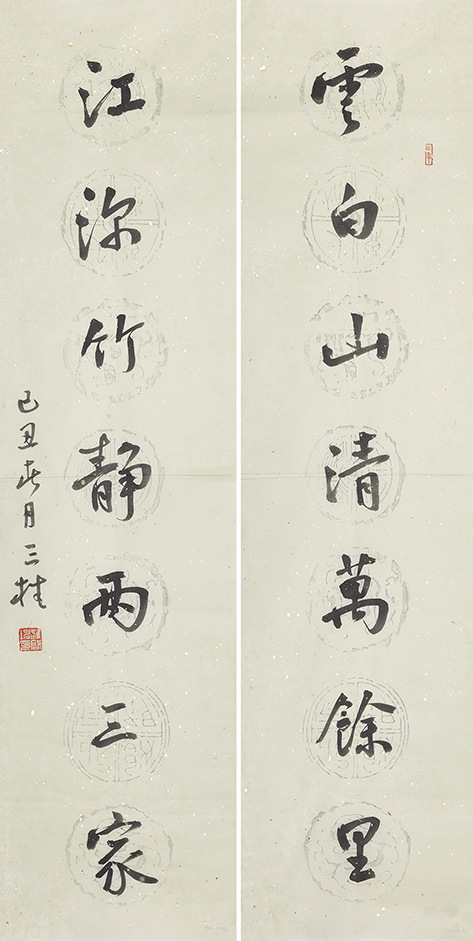 雲白山清萬餘里
江深竹靜兩三家
己丑春月三桂